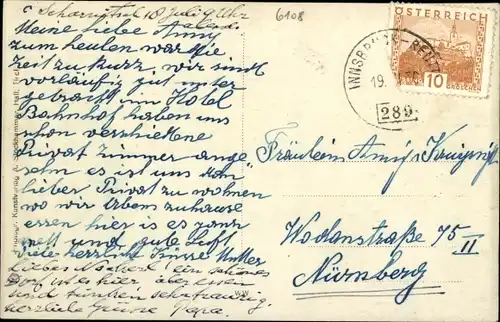 Scharnitz 18 Juli 9 Uhr
abends
Meine liebe Amy
zum heulen war die
Zeit zu kurz, wir sind
vorläufig gut unter
gebracht im Hotel
Bahnhof haben uns
schon verschiedene
Privat zimmer ange
sehn es ist uns
lieber Privat zu wohnen
wo wir Abens zuhause
essen hier is es ganz
nett und gute Luft
viele herzliche Küsse Mutter
Liebes ein schönes
Dorf ist es hier aber essen
und trinken
herzliche Grüsse Papa.
6108
ÖSTERREICH
10
GROSCHEN
INNSBRUCK
19.
289
Fräulein Amy
Wodanstraße 75
II
Nürnberg